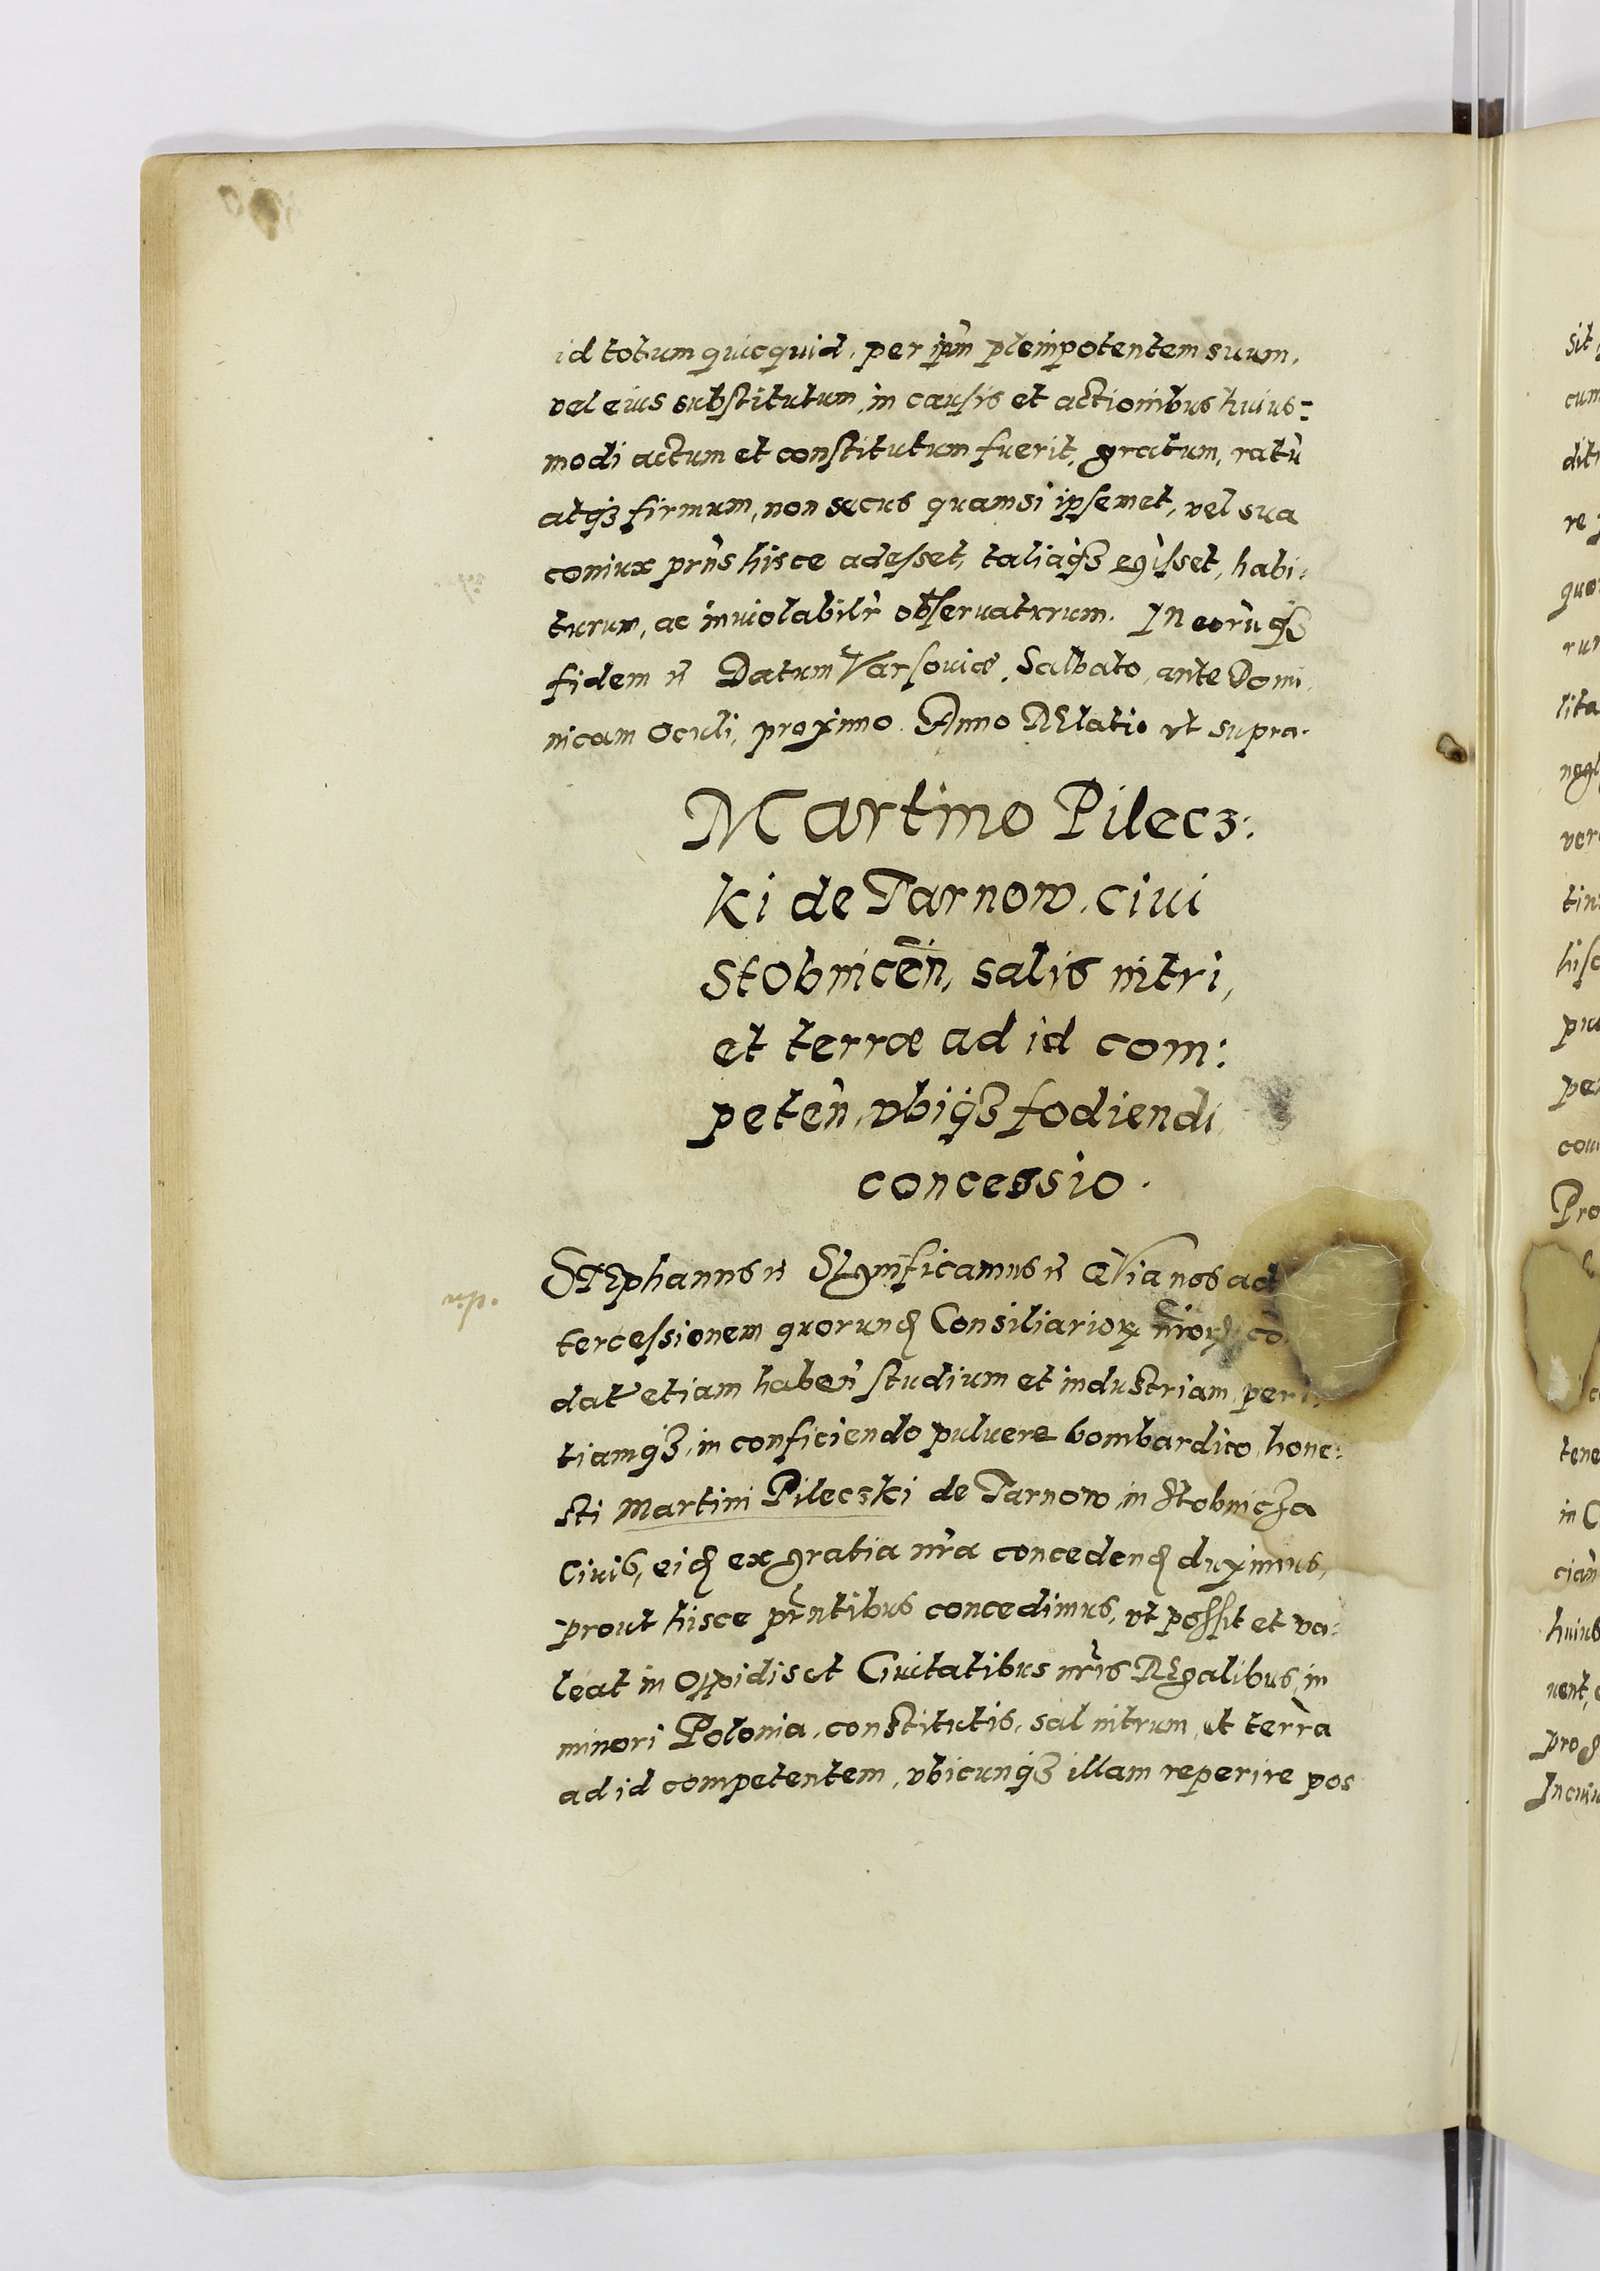 id totum quicquid, per ipm̃ plenipotentem suum,
vel eius substitutum, in causis et actionibus huius=
modi actum et constitutum fuerit, gratum, ratũ
atqꝫ firmum, non secus quamsi ipsemet, vel sua
coniux pr̃ns hisce adesset, taliãqꝫ egisset, habi:
turum, ac inviolabilr̃ observaturum. In eorũ qꝫ
fidem Datum Varsouiæ, Sabbato, ante Domi
nicam Oculi, proximo. Anno RElatio vt supra.
Martino Pilecz:
ki de Tarnow, ciui
Stobnicen̄, salis nitri,
et terræ ad id com:
peten̄, vbiqꝫ fodiendi
concessio.
STEphanus Significamus Quia nos ad
tercessionem quorunđ Consiliarioꝝ nr̃oꝝ co
dat etiam haben̄ studium et industriam, per
tiamqꝫ, in conficiendo puluere bombardico, hone:
sti Martini Pilecski de Tarnow, in Stobnicza
Ciuis, eiđ ex gratia nr̃a concedenđ duximus,
prout hisce pr̃ntibus concedimus, vt possit et va:
leat in Oppidis et Ciuitatibus nr̃is REgalibus, in
minori Polonia, constitutis, sal nitrum, et terrã
ad id competentem, vbicunqꝫ illam reperire pos